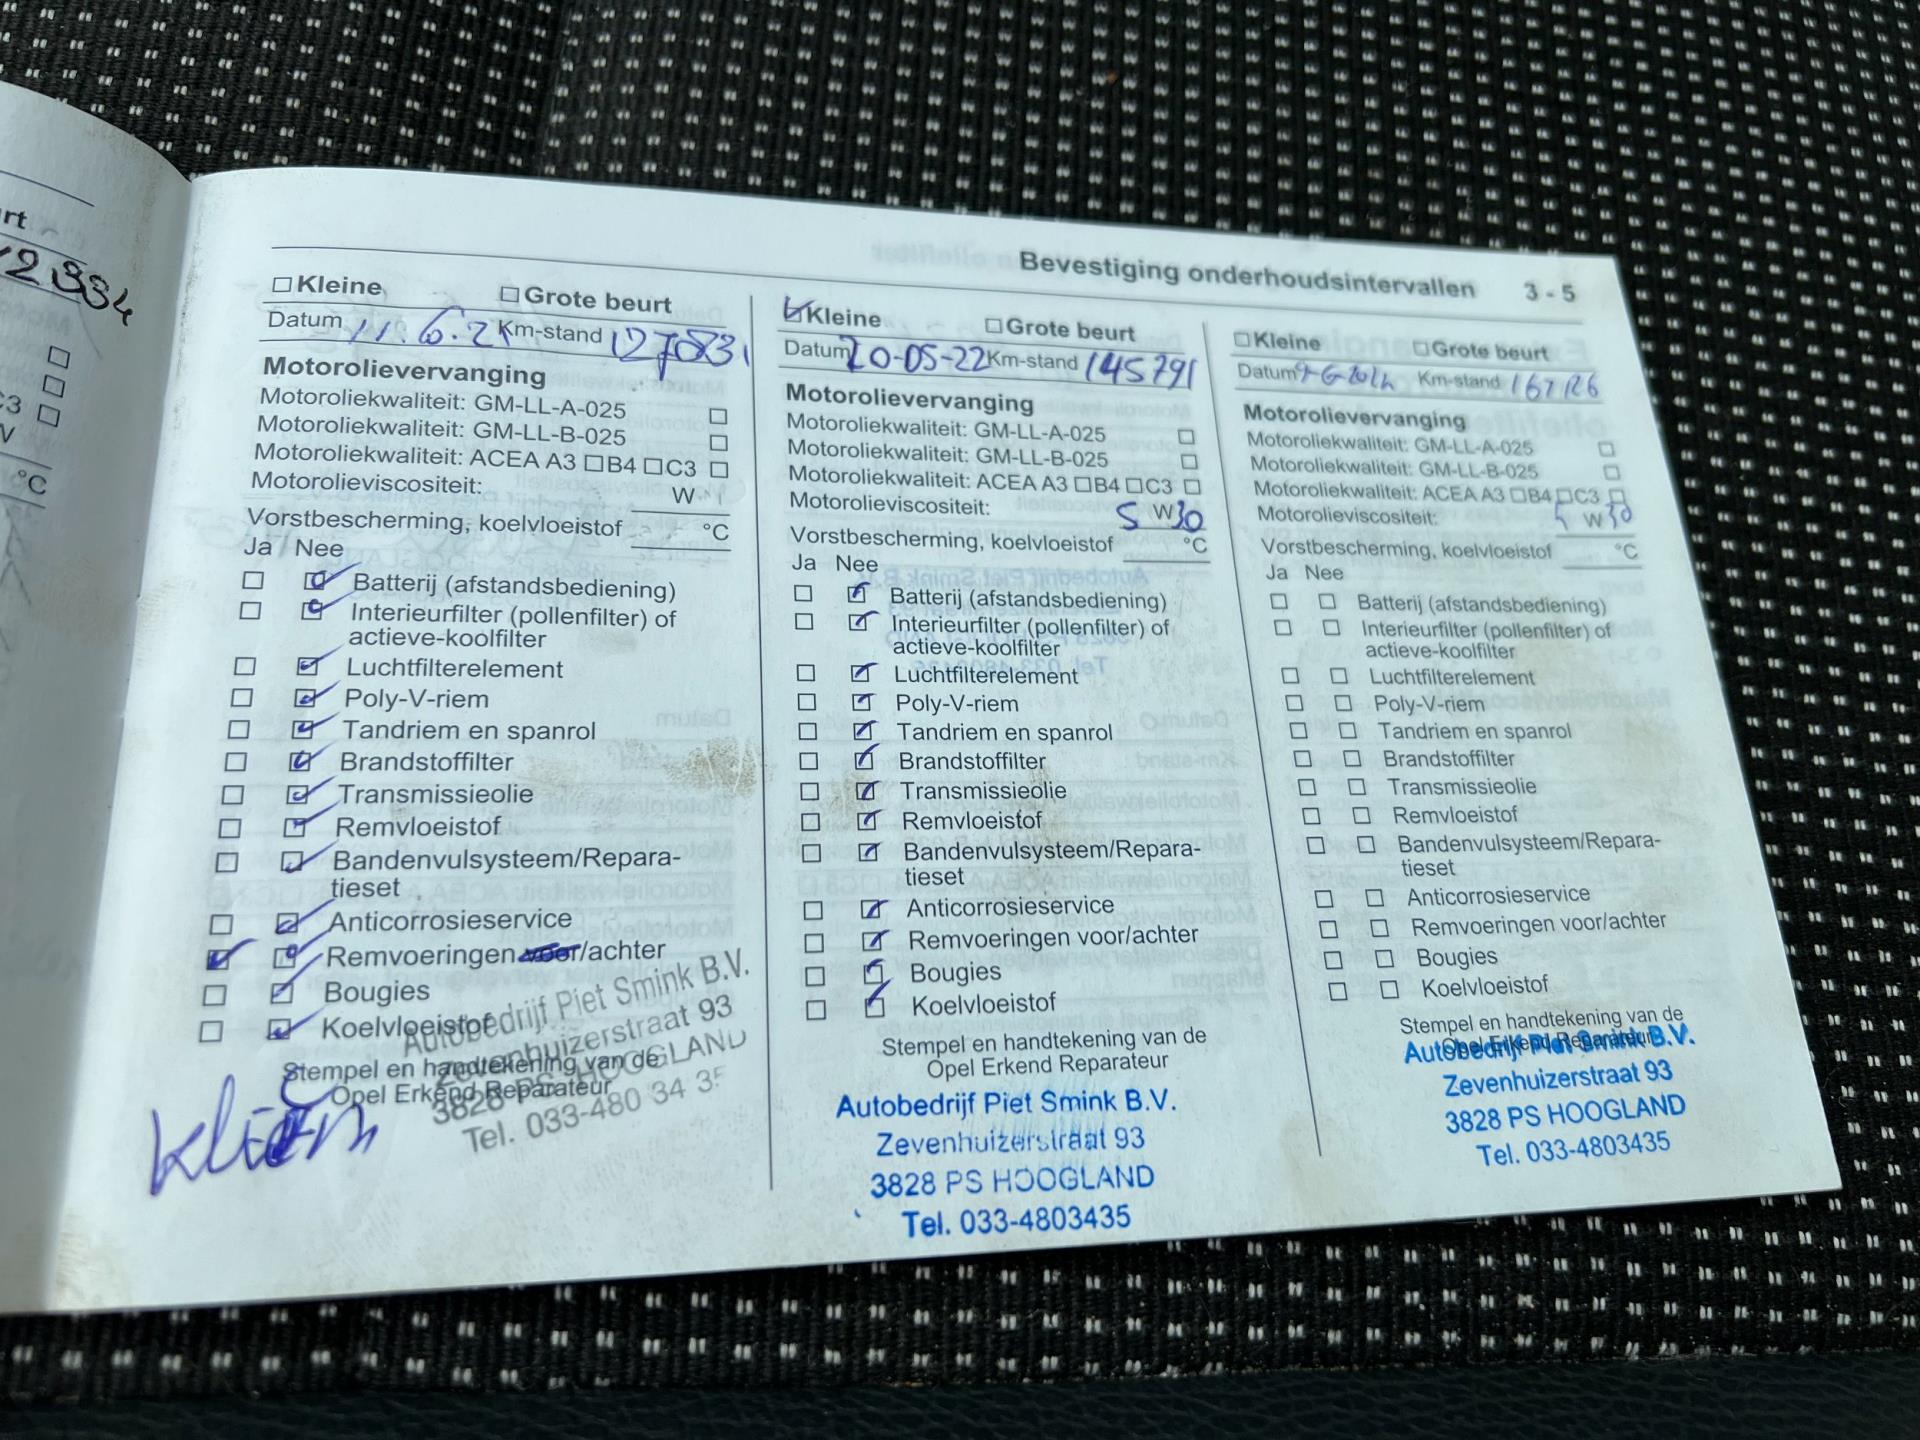 rt
Bevestiging onderhoudsintervallen 3 - 5
Kleine Grote beurt
Datum 11.6.21 Km-stand 127831
Motorolievervanging
Motoroliekwaliteit: GM-LL-A-025
Motoroliekwaliteit: GM-LL-B-025
Motoroliekwaliteit: ACEA A3 B4 C3
Motorolieviscositeit: W
Vorstbescherming, koelvloeistof °C
Ja Nee
Batterij (afstandsbediening)
Interieurfilter (pollenfilter) of
actieve-koolfilter
Luchtfilterelement
Poly-V-riem
Tandriem en spanrol
Brandstoffilter
Transmissieolie
Remvloeistof
Bandenvulsysteem/Repara-
tieset
Anticorrosieservice
Remvoeringen voor/achter
Bougies
Koelvloeistof
Stempel en handtekening van de
Opel Erkend Reparateur
Autobedrijf Piet Smink B.V.
Zevenhuizerstraat 93
3828 PS HOOGLAND
Tel. 033-480 34 35
Kleine Grote beurt
Datum 20-05-22 Km-stand 145791
Motorolievervanging
Motoroliekwaliteit: GM-LL-A-025
Motoroliekwaliteit: GM-LL-B-025
Motoroliekwaliteit: ACEA A3 B4 C3
Motorolieviscositeit: 5 W 30
Vorstbescherming, koelvloeistof °C
Ja Nee
Batterij (afstandsbediening)
Interieurfilter (pollenfilter) of
actieve-koolfilter
Luchtfilterelement
Poly-V-riem
Tandriem en spanrol
Brandstoffilter
Transmissieolie
Remvloeistof
Bandenvulsysteem/Repara-
tieset
Anticorrosieservice
Remvoeringen voor/achter
Bougies
Koelvloeistof
Stempel en handtekening van de
Opel Erkend Reparateur
Autobedrijf Piet Smink B.V.
Zevenhuizerstraat 93
3828 PS HOOGLAND
Tel. 033-4803435
Kleine Grote beurt
Datum Km-stand
Motorolievervanging
Motoroliekwaliteit: GM-LL-A-025
Motoroliekwaliteit: GM-LL-B-025
Motoroliekwaliteit: ACEA A3 B4 C3
Motorolieviscositeit: 5 W 30
Vorstbescherming, koelvloeistof °C
Ja Nee
Batterij (afstandsbediening)
Interieurfilter (pollenfilter) of
actieve-koolfilter
Luchtfilterelement
Poly-V-riem
Tandriem en spanrol
Brandstoffilter
Transmissieolie
Remvloeistof
Bandenvulsysteem/Repara-
tieset
Anticorrosieservice
Remvoeringen voor/achter
Bougies
Koelvloeistof
Stempel en handtekening van de
Opel Erkend Reparateur
Autobedrijf Piet Smink B.V.
Zevenhuizerstraat 93
3828 PS HOOGLAND
Tel. 033-4803435